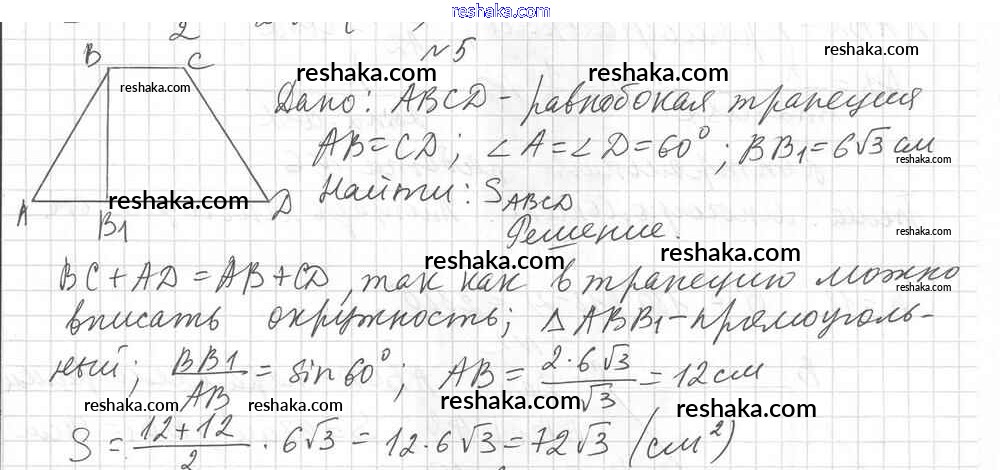 reshaka.com
№5
B C
reshaka.com reshaka.com reshaka.com reshaka.com
Дано: ABCD - равнобокая трапеция
AB = CD; ∠A = ∠D = 60°; BB1 = 6√3 см
reshaka.com
reshaka.com Найти: SABCD
A B1 D
Решение.
reshaka.com reshaka.com reshaka.com
BC + AD = AB + CD, так как в трапецию можно
reshaka.com
вписать окружность; △ABB1 - прямоуголь-
ный; BB1/AB = sin 60°; AB = 2·6√3/√3 = 12 см
reshaka.com reshaka.com reshaka.com reshaka.com
S = 12+12/2 · 6√3 = 12·6√3 = 72√3 (см²)